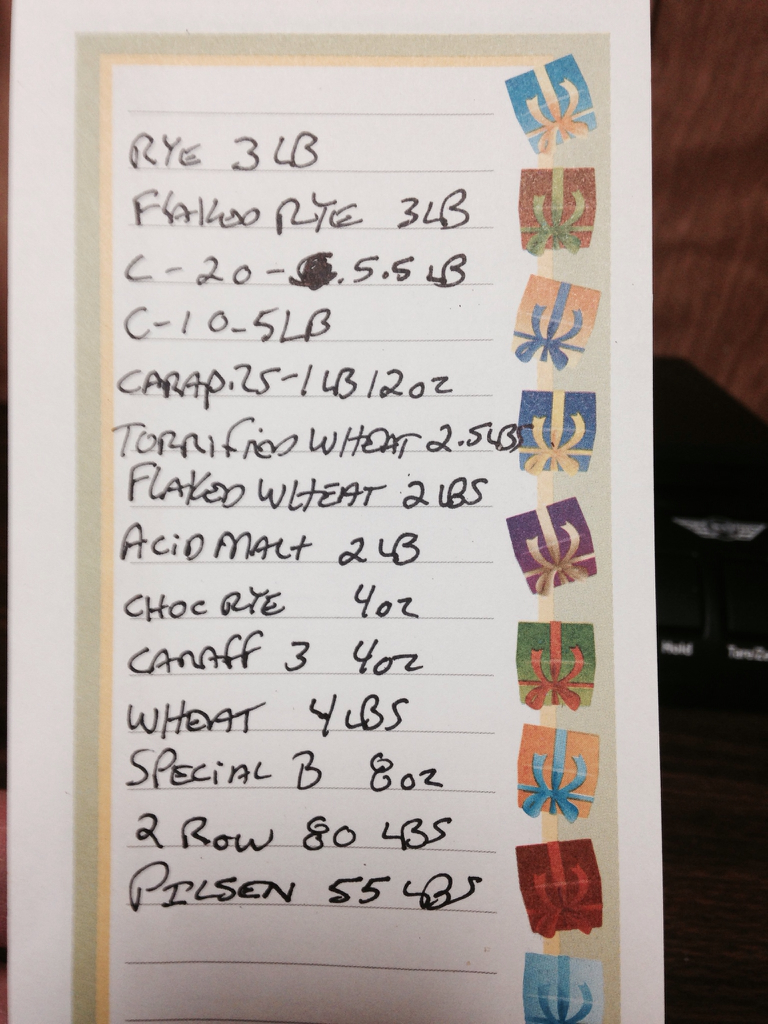 RYE 3 LB
FLAKED RYE 3 LB
C-20- .5.5 LB
C-10-5LB
CARAPILS-1 LB 12oz
TORRIFIED WHEAT 2.5LBS
FLAKED WHEAT 2 LBS
ACID MALT 2 LB
CHOC RYE 4oz
CARAFF 3 4oz
WHEAT 4 LBS
SPECIAL B 8oz
2 ROW 80 LBS
PILSEN 55 LBS
Hold